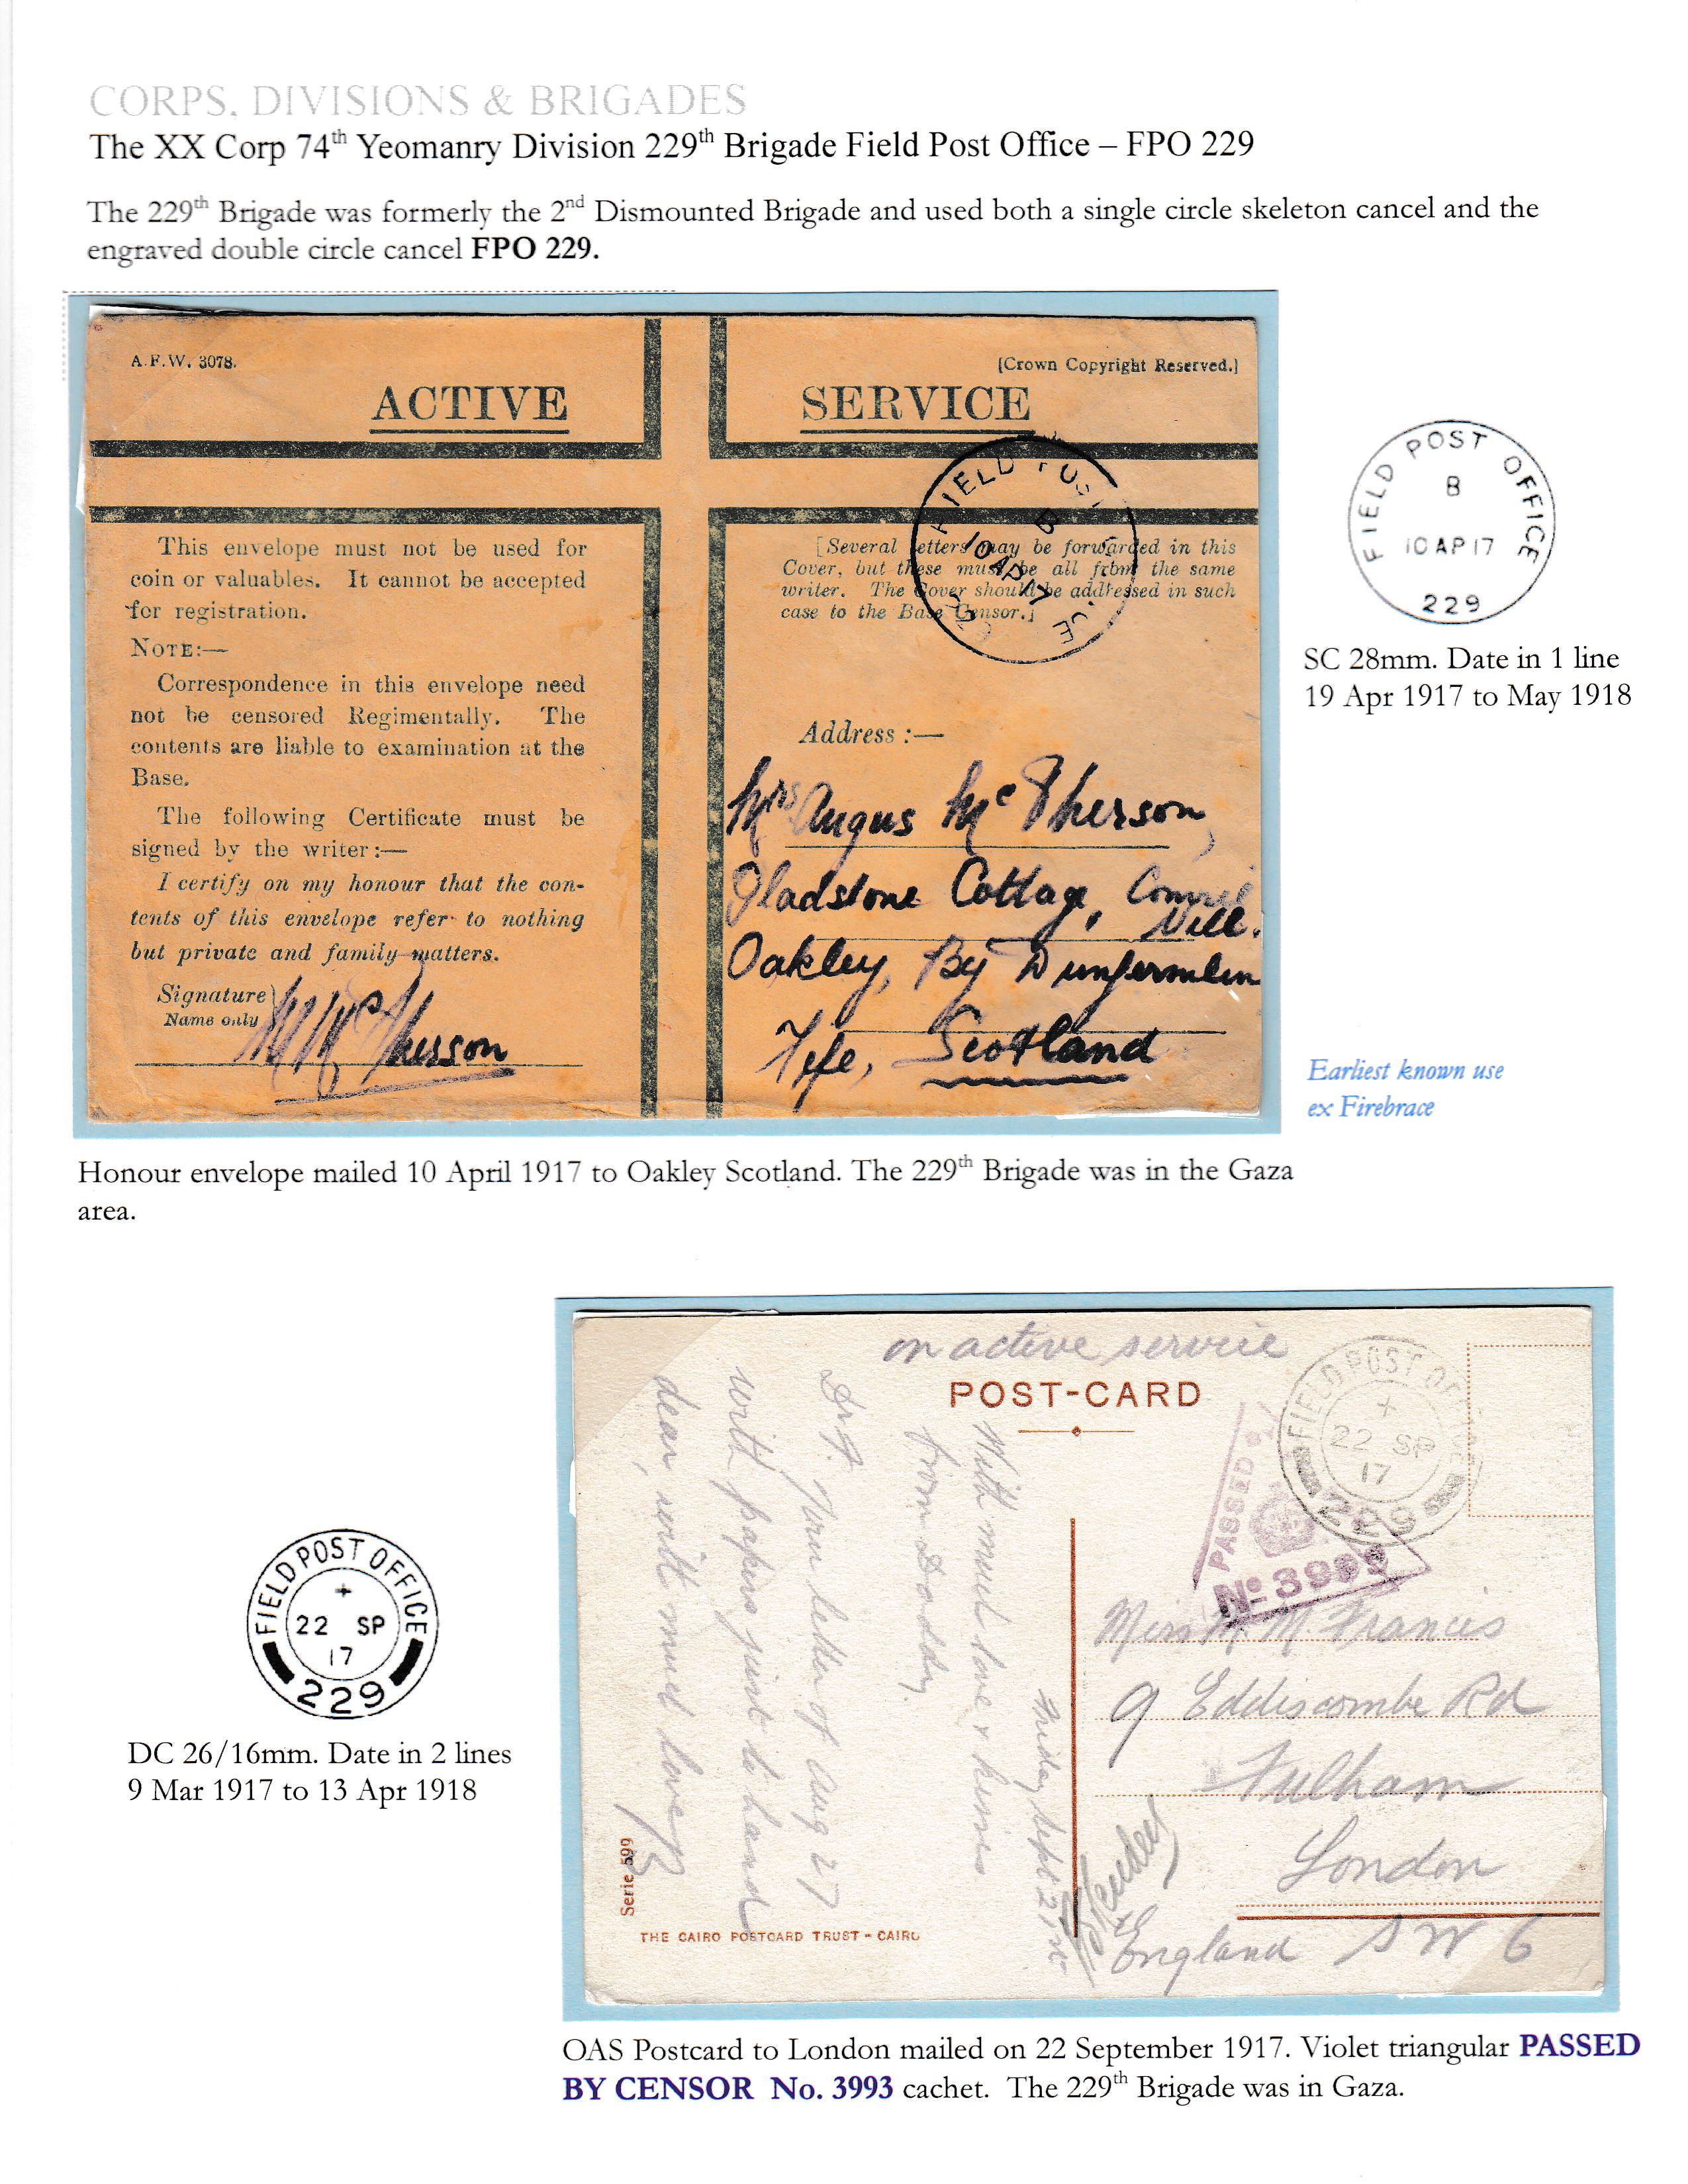 CORPS, DIVISIONS & BRIGADES
The XX Corp 74th Yeomanry Division 229th Brigade Field Post Office – FPO 229
The 229th Brigade was formerly the 2nd Dismounted Brigade and used both a single circle skeleton cancel and the
engraved double circle cancel FPO 229.
A.F.W. 3078.
[Crown Copyright Reserved.]
ACTIVE SERVICE
This envelope must not be used for
coin or valuables. It cannot be accepted
for registration.
NOTE:—
Correspondence in this envelope need
not be censored Regimentally. The
contents are liable to examination at the
Base.
The following Certificate must be
signed by the writer:—
I certify on my honour that the con-
tents of this envelope refer to nothing
but private and family matters.
Signature
Name only
McPherson
[Several letters may be forwarded in this
Cover, but these must be all from the same
writer. The Cover should be addressed in such
case to the Base Censor.]
FIELD POST
B
10 AP 17
Address :—
Mrs Angus McPherson,
Gladstone Cottage, Comrie
Vill.
Oakley, By Dunfermlin
Fife, Scotland
FIELD POST OFFICE
B
10 AP 17
229
SC 28mm. Date in 1 line
19 Apr 1917 to May 1918
Earliest known use
ex Firebrace
Honour envelope mailed 10 April 1917 to Oakley Scotland. The 229th Brigade was in the Gaza
area.
on active service
POST-CARD
FIELD POST OFFICE
22 SP
17
229
PASSED
No 3993
Friday Sept 21st
With much love & kisses
from Daddy.
Your letter of Aug 27
with papers just to hand
dear, with much love
Miss M. M. Francis
9 Eddiscombe Rd
Fulham
London
England SW 6
Serie 599
THE CAIRO POSTCARD TRUST - CAIRO
FIELD POST OFFICE
22 SP
17
229
DC 26/16mm. Date in 2 lines
9 Mar 1917 to 13 Apr 1918
OAS Postcard to London mailed on 22 September 1917. Violet triangular PASSED
BY CENSOR No. 3993 cachet. The 229th Brigade was in Gaza.